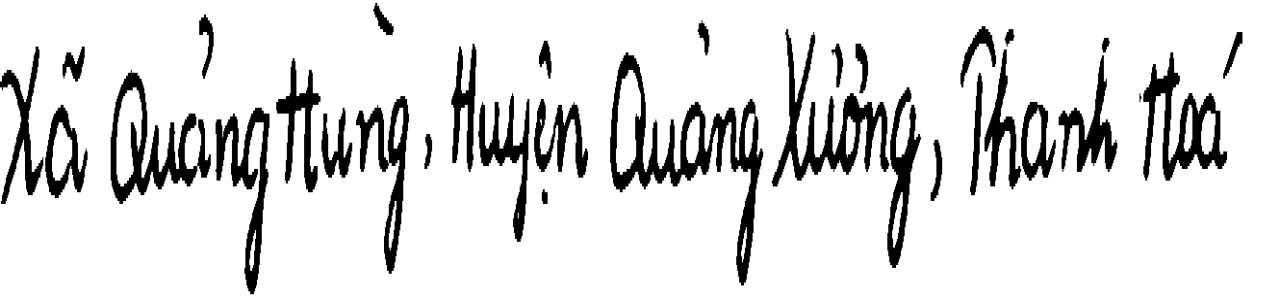 Xã Quảng Hùng, Huyện Quảng Xương, Thanh Hoá